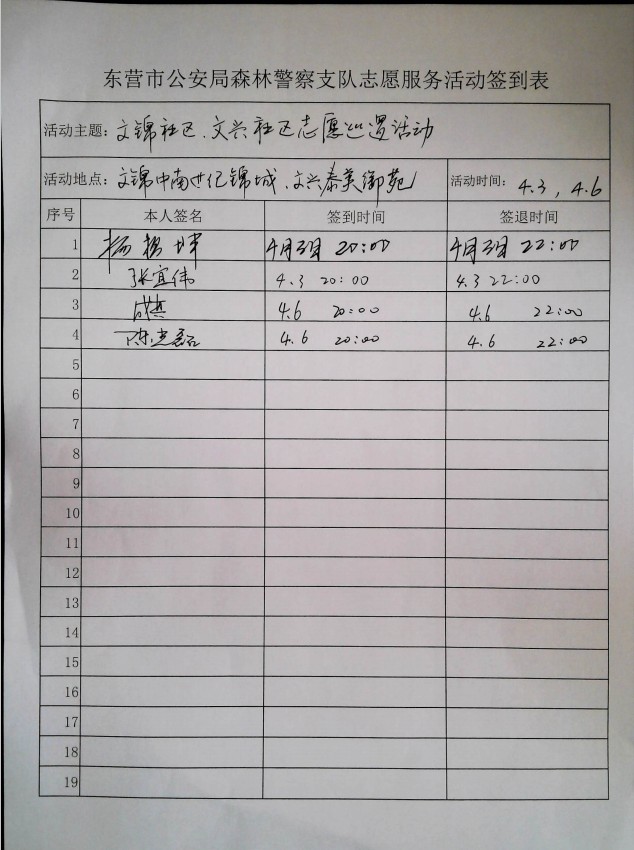 东营市公安局森林警察支队志愿服务活动签到表
活动主题：文锦社区、文兴社区志愿巡逻活动
活动地点：文锦中南世纪锦城、文兴泰美御苑 活动时间：4.3，4.6
序号 本人签名 签到时间 签退时间
1 杨 坤 4月3日 20:00 4月3日 22:00
2 张宜伟 4.3 20:00 4.3 22:00
3 4.6 20:00 4.6 22:00
4 陈 磊 4.6 20:00 4.6 22:00
5
6
7
8
9
10
11
12
13
14
15
16
17
18
19